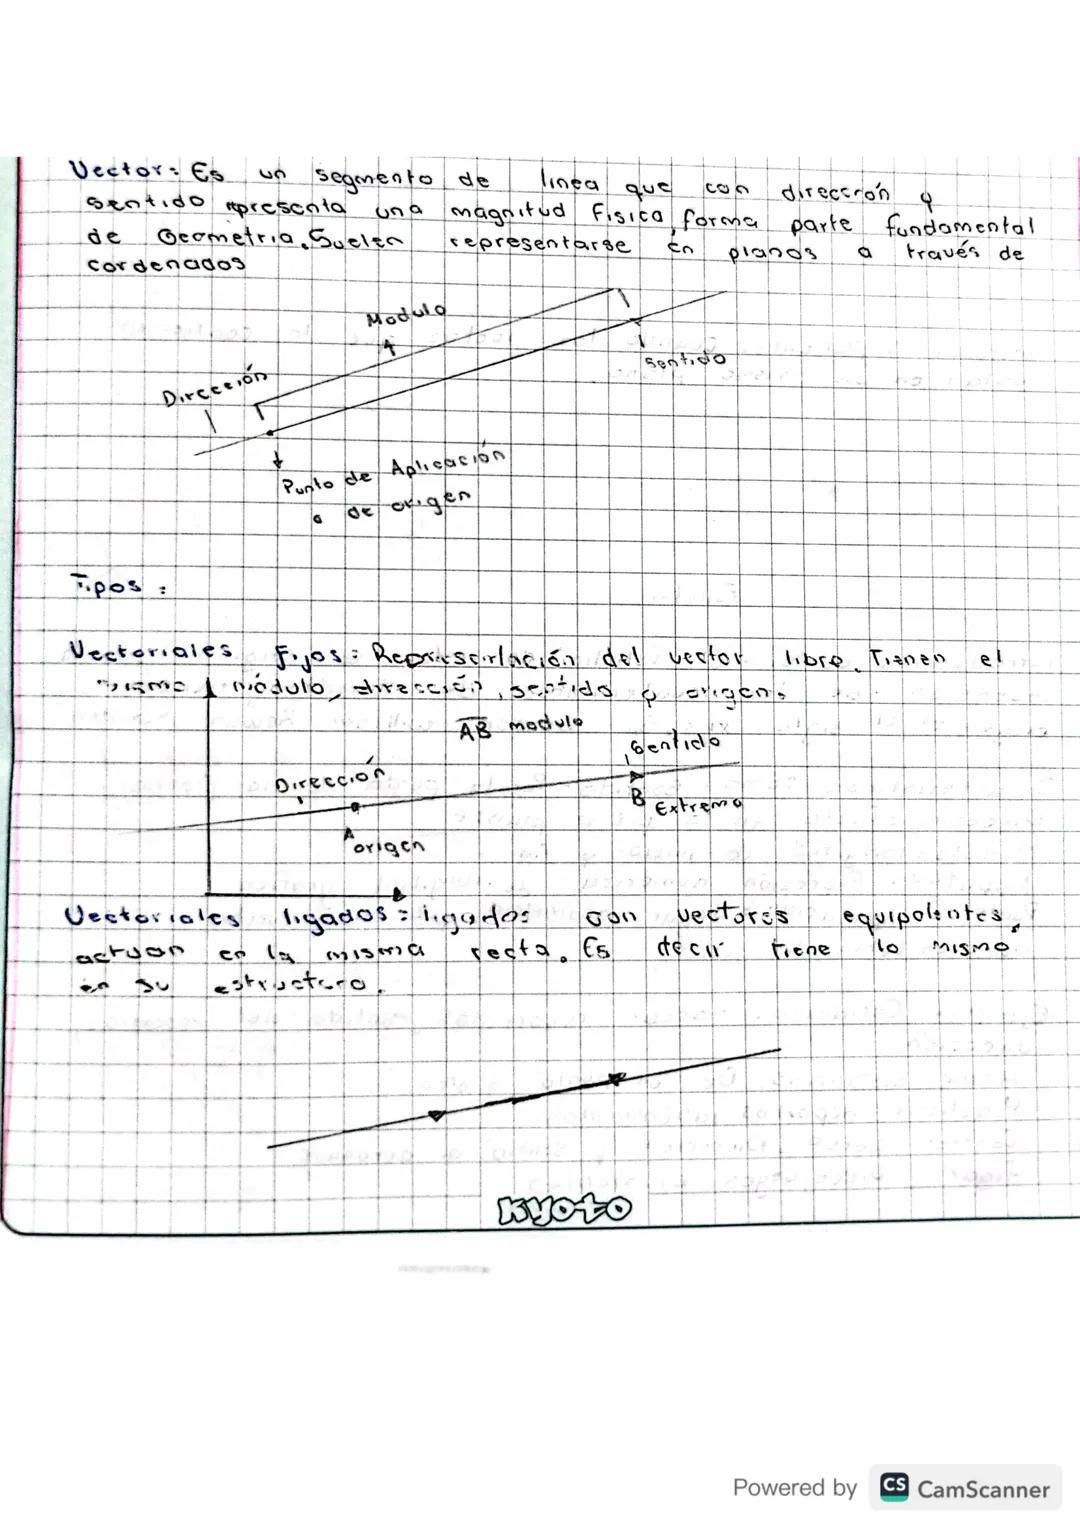 Vector: Es un segmento de linea que con dirección y
sentido representa una magnitud Fisica, forma parte fundamental
de Geometria. Suelen representarse En planos a través de
cordenados
Modulo
Dirección
sentido
Punto de Aplicación
o de origen
Tipos :
Vectoriales Fijos : Representación del vector libre. Tienen el
mismo módulo, dirección, sentido y origen.
AB modulo
Sentido
Dirección
B Extremo
A origen
Vectoriales ligados : ligados con vectores equipolentes,
actuan en la misma recta. Es decir tiene lo mismo
en su estructura.
KYOTO
Powered by CS CamScanner